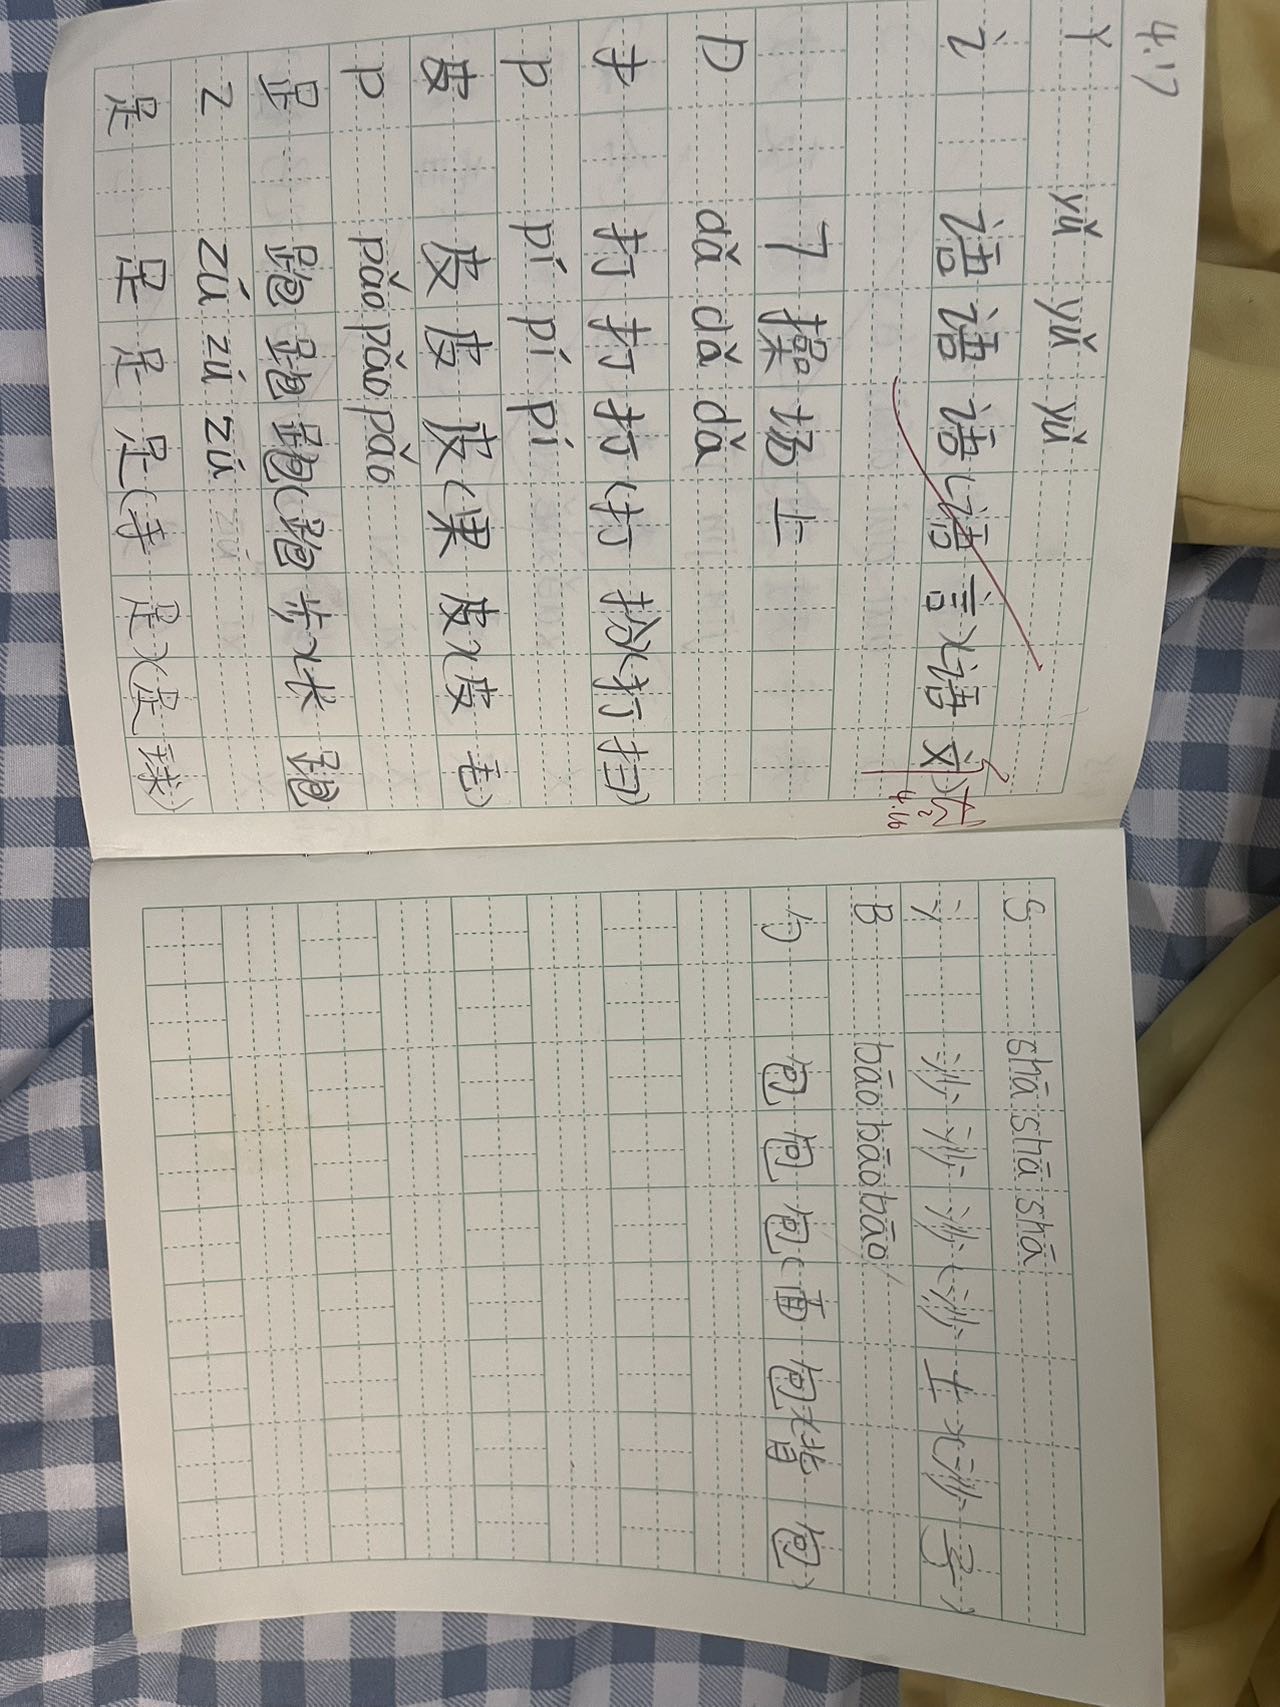 4.17
Y yǔ yǔ yǔ
讠 语 语 语(语言)(语文)
4.16
7 操场上
D dǎ dǎ dǎ
扌 打 打 打(打扮)(打扫)
P pí pí pí
皮 皮 皮 皮(果皮)(皮毛)
P pǎo pǎo pǎo
𧾷 跑 跑 跑(跑步)(长跑
Z zú zú zú
足 足 足 足(手足)(足球)
S shā shā shā
氵 沙 沙 沙(沙土)(沙子)
B bāo bāo bāo
勹 包 包 包(面包)(背包)